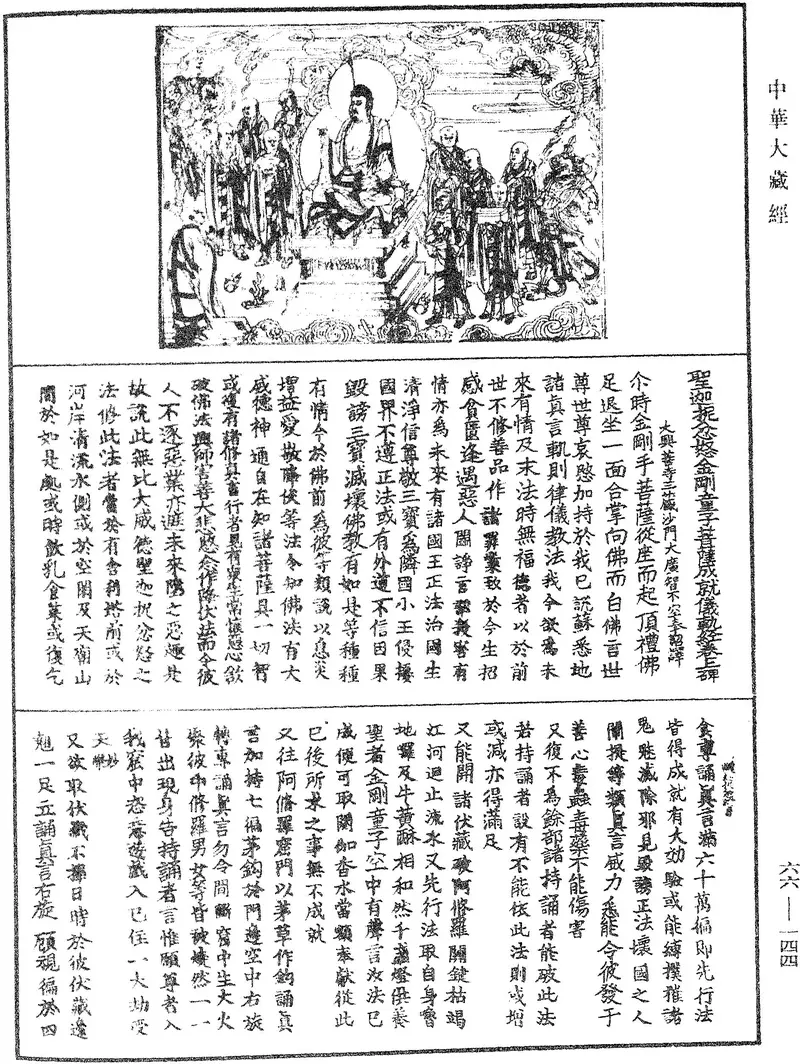 中華大藏經
聖迦抳忿怒金剛童子菩薩成就儀軌經卷上 碑
大興善寺三藏沙門大廣智不空奉詔譯
尒時金剛手菩薩從座而起頂禮佛
足退坐一面合掌向佛而白佛言世
尊世尊哀愍加持於我已說蘇悉地
諸真言軌則律儀教法我今欲為未
來有情及末法時無福德者以於前
世不修善品作諸罪業致於今生招
感貧匱逢遇惡人鬪諍言訟損害有
情亦為未來有諸國王正法治國生
清淨信尊敬三寶為隣國小王侵擾
國界不遵正法或有外道不信因果
毀謗三寶滅壞佛教有如是等種種
有情今於佛前為彼等類說以息災
增益愛敬降伏等法令知佛法有大
威德神通自在知諸菩薩具一切智
或復有諸修真言行者見有眾生常懷惡心欲
破佛法興師害善大悲愍念作降伏法而令彼
人不逐惡業亦遮未來墮之惡趣是
故說此無比大威德聖迦抳忿怒之
法修此法者當於有舍利塔前或於
河岸清流水側或於空閑及天廟山
間於如是處或時飲乳食菜或復乞
食專誦真言滿六十萬徧即先行法
皆得成就有大効驗或能縛撲摧諸
鬼魅滅除邪見毀謗正法壞國之人
闡提等類真言威力悉能令彼發于
善心蠱毒藥不能傷害
又復不為餘部諸持誦者能破此法
若持誦者設有不能依此法則或增
或減亦得滿足
又能開諸伏藏破阿修羅關鍵枯竭
江河迴止流水又先行法取自身膏
地羅及牛黃酥相和然千盞燈供養
聖者金剛童子空中有聲言汝法已
成便可取閼伽香水當額奉獻從此
已後所求之事無不成就
又往阿修羅窟門以茅草作鉤誦真
言加持七徧茅鉤於門邊空中右旋
轉專誦真言勿令間斷窟中生大火
聚彼中修羅男女等皆被燒然一一
皆出現身告持誦者言惟願尊者入
我宮中恣意遊戲入已住一大劫受
天妙樂
又欲取伏藏不擇日時於彼伏藏邊
翹一足立誦真言右旋顧視徧於四
六六—一四四